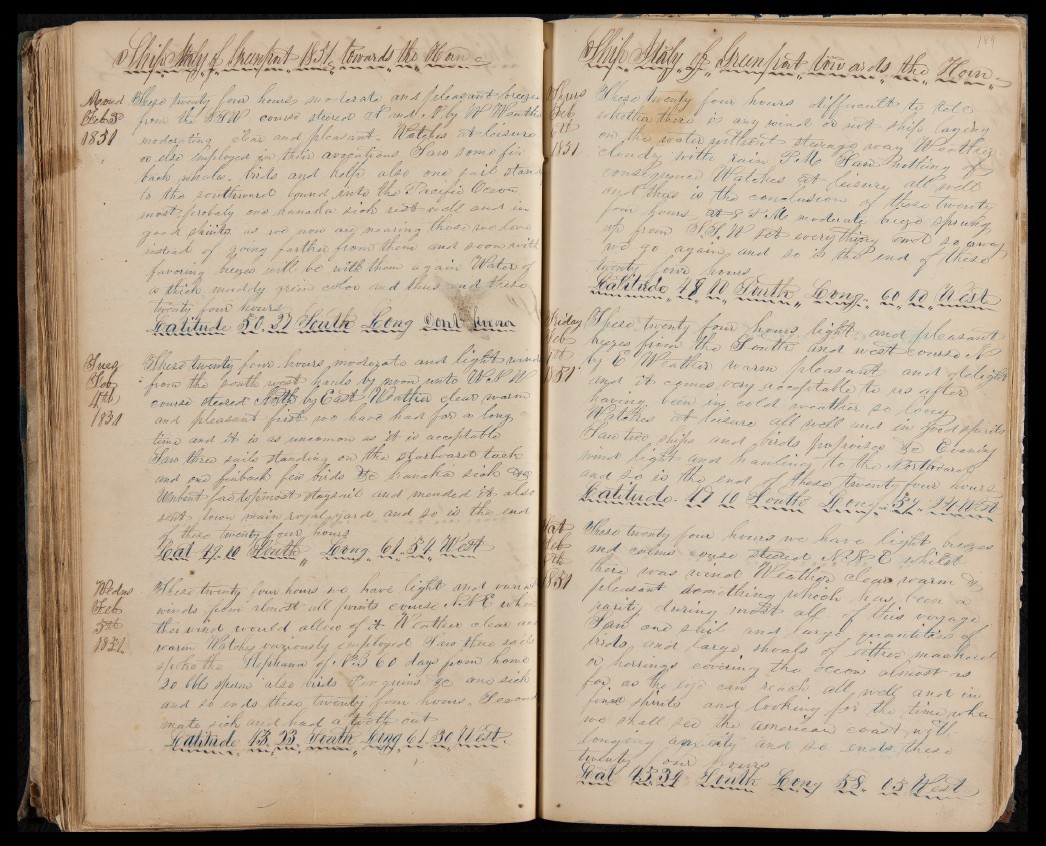 Ship Italy of Greenport 1851 towards the Horn
Mond These twenty four hours moderate and pleasant breezes
Feb 3d from the course steered and N by W Weather
1851 moderating clear and pleasant. Watches at leisure
or else employed in their avocations Saw some fin
back whales birds and kelp also one sail standing
to the southward bound into the Pacific Ocean
most probaly one kanaka sick rest well and in
good spirits as we now are nearing those we love
instead of going farther from them and soon with
favoring breezes will be with them again Water of
a thick muddy green color and thus end these
twenty four hours
Latitude 50.27 South Long Dont know
Tues These twenty four hours moderate and light winds
Feb from the south west hauls by noon unto W N W
4th course steared North by East Weather clear warm
1851 and pleasant first we have had for a long
time and it is as uncomon as it is acceptable
Saw three sails standing on the starboard tack
and one finback few birds &c kanaka sick &c
Unbent fore topmost staysail and mended it also
sent down main royal yard and so is the end
of these twenty four hours
Lat 47.10 South Long 61.54 West
Wedns These twenty four hours we have light and
Feb winds from almost all points course N N E when
5th the wind would allow of it Weather clear and
1851 warm Watch variously employed Saw three sails
spoke the Stephana of N.B 60 days from home
20 bbls sperm also birds Penguins &c one sick
and so ends these twenty four hours. Second
mate sick and had a tooth out
Latitude 45.23 South Long 61.30 West
189
Ship Italy of Greenport towards the Horn
Thurs These twenty four hours difficult to tell
Feb whether there is any wind or not ship laying
6th on the water without steerage way Weather
1851 cloudy with rain P.M. Saw nothing of
consequence Watches at leisure all well
and thus is the conclusion of these twenty
four hours at 8 P.M. moderate breeze sprung
up from S.S.W set everything and so away
we go again and so is the end of these
twenty four hours
Latitude 48.10 South Long. 60.12 West
Friday These twenty four hours light and pleasant
Feb breezes from the South and west course N
7th by E Weather warm pleasant and delight
1851 and it comes very acceptable to us after
having been in cold weather so long
Watches at leisure all well and in good spirits
Saw two ships and birds porpoises &c Evening
wind light and hauling to the Northward
and so is the end of these twenty four hours
Latitude. 47 10 South Long. 59. 24 West
Sat These twenty four hours we have light breezes
Feb and calms course steared N N E whilst
8th there was wind Weather clear warm &
1851 pleasant something which has been a
rarity during most all of this voyage
Saw one sail and large quantities of
birds and large shoals of either mackerel
or herrings covering the ocean almost as
far as the eye can reach all well and in
fine spirits and looking for the time when
we shall see the american coast with
longing anxiety and so ends these
twenty four hours
Lat 45.34 South Long 58. 05 West